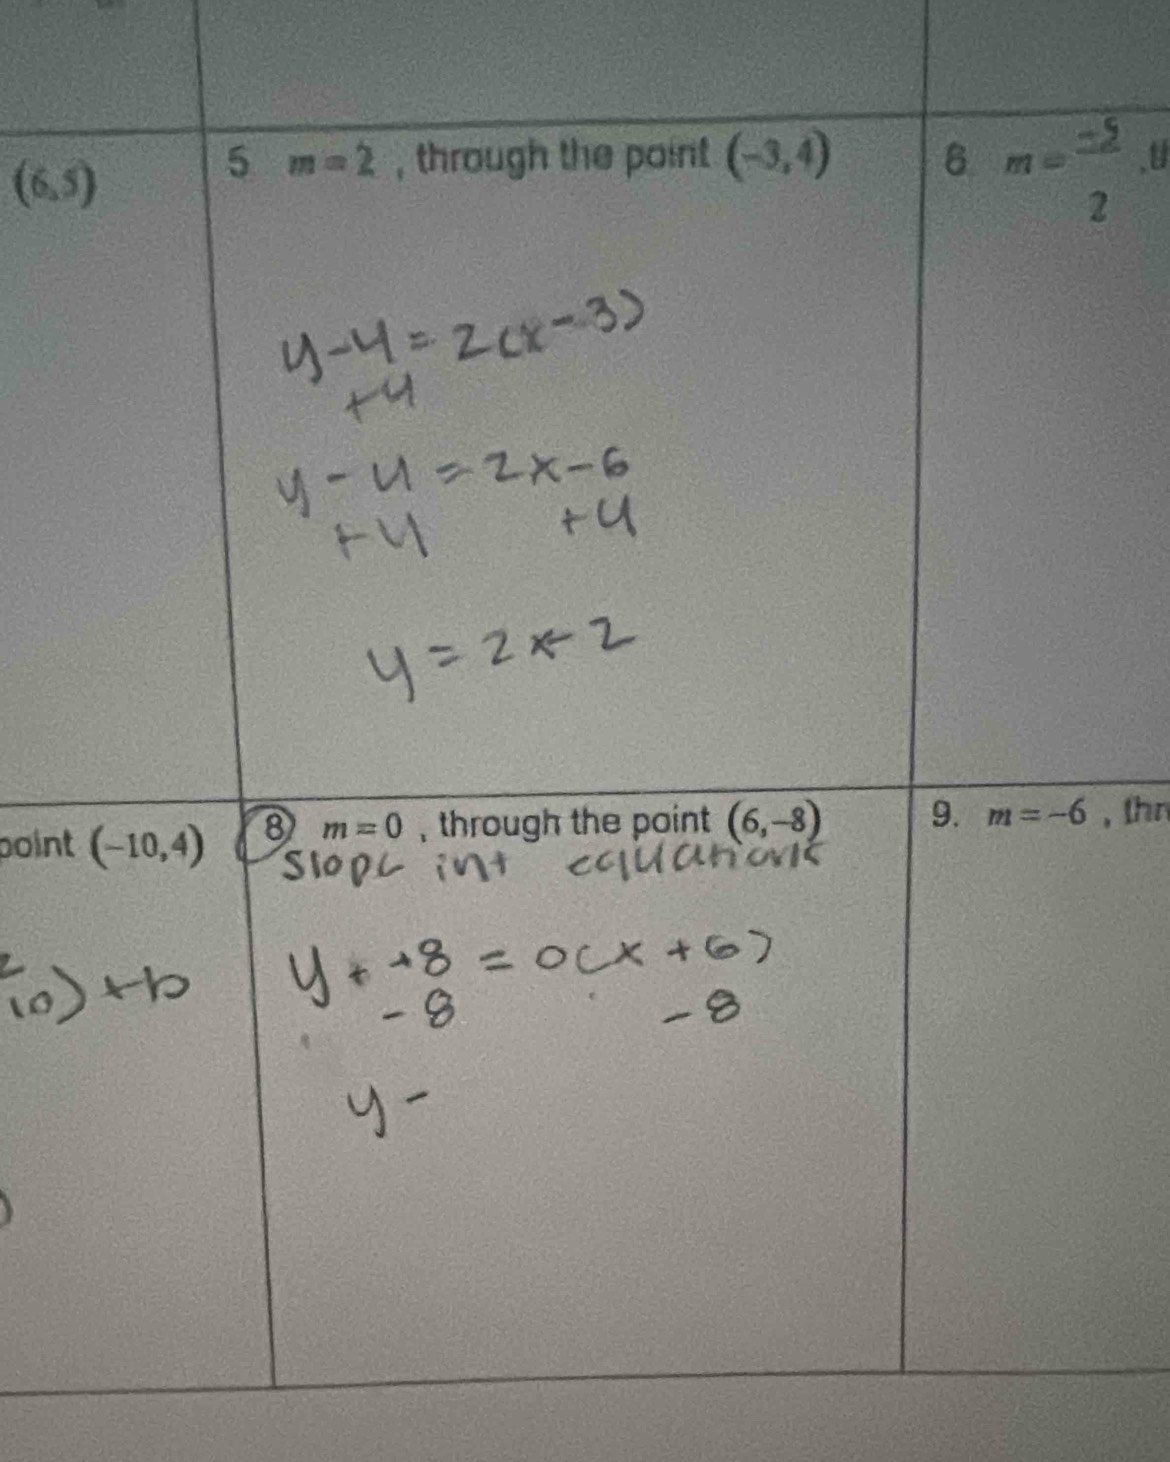 (6,5)
5 m = 2 , through the point (-3,4)
6. m = -5/2
y-4 = 2(x-3)
+4
y - 4 = 2x-6
+4 +4
y = 2x-2
point (-10,4)
8) m = 0 , through the point (6,-8)
9. m = -6 , thr
slope int equations
10) + b
y + +8 = 0(x + 6)
-8 -8
y -
)